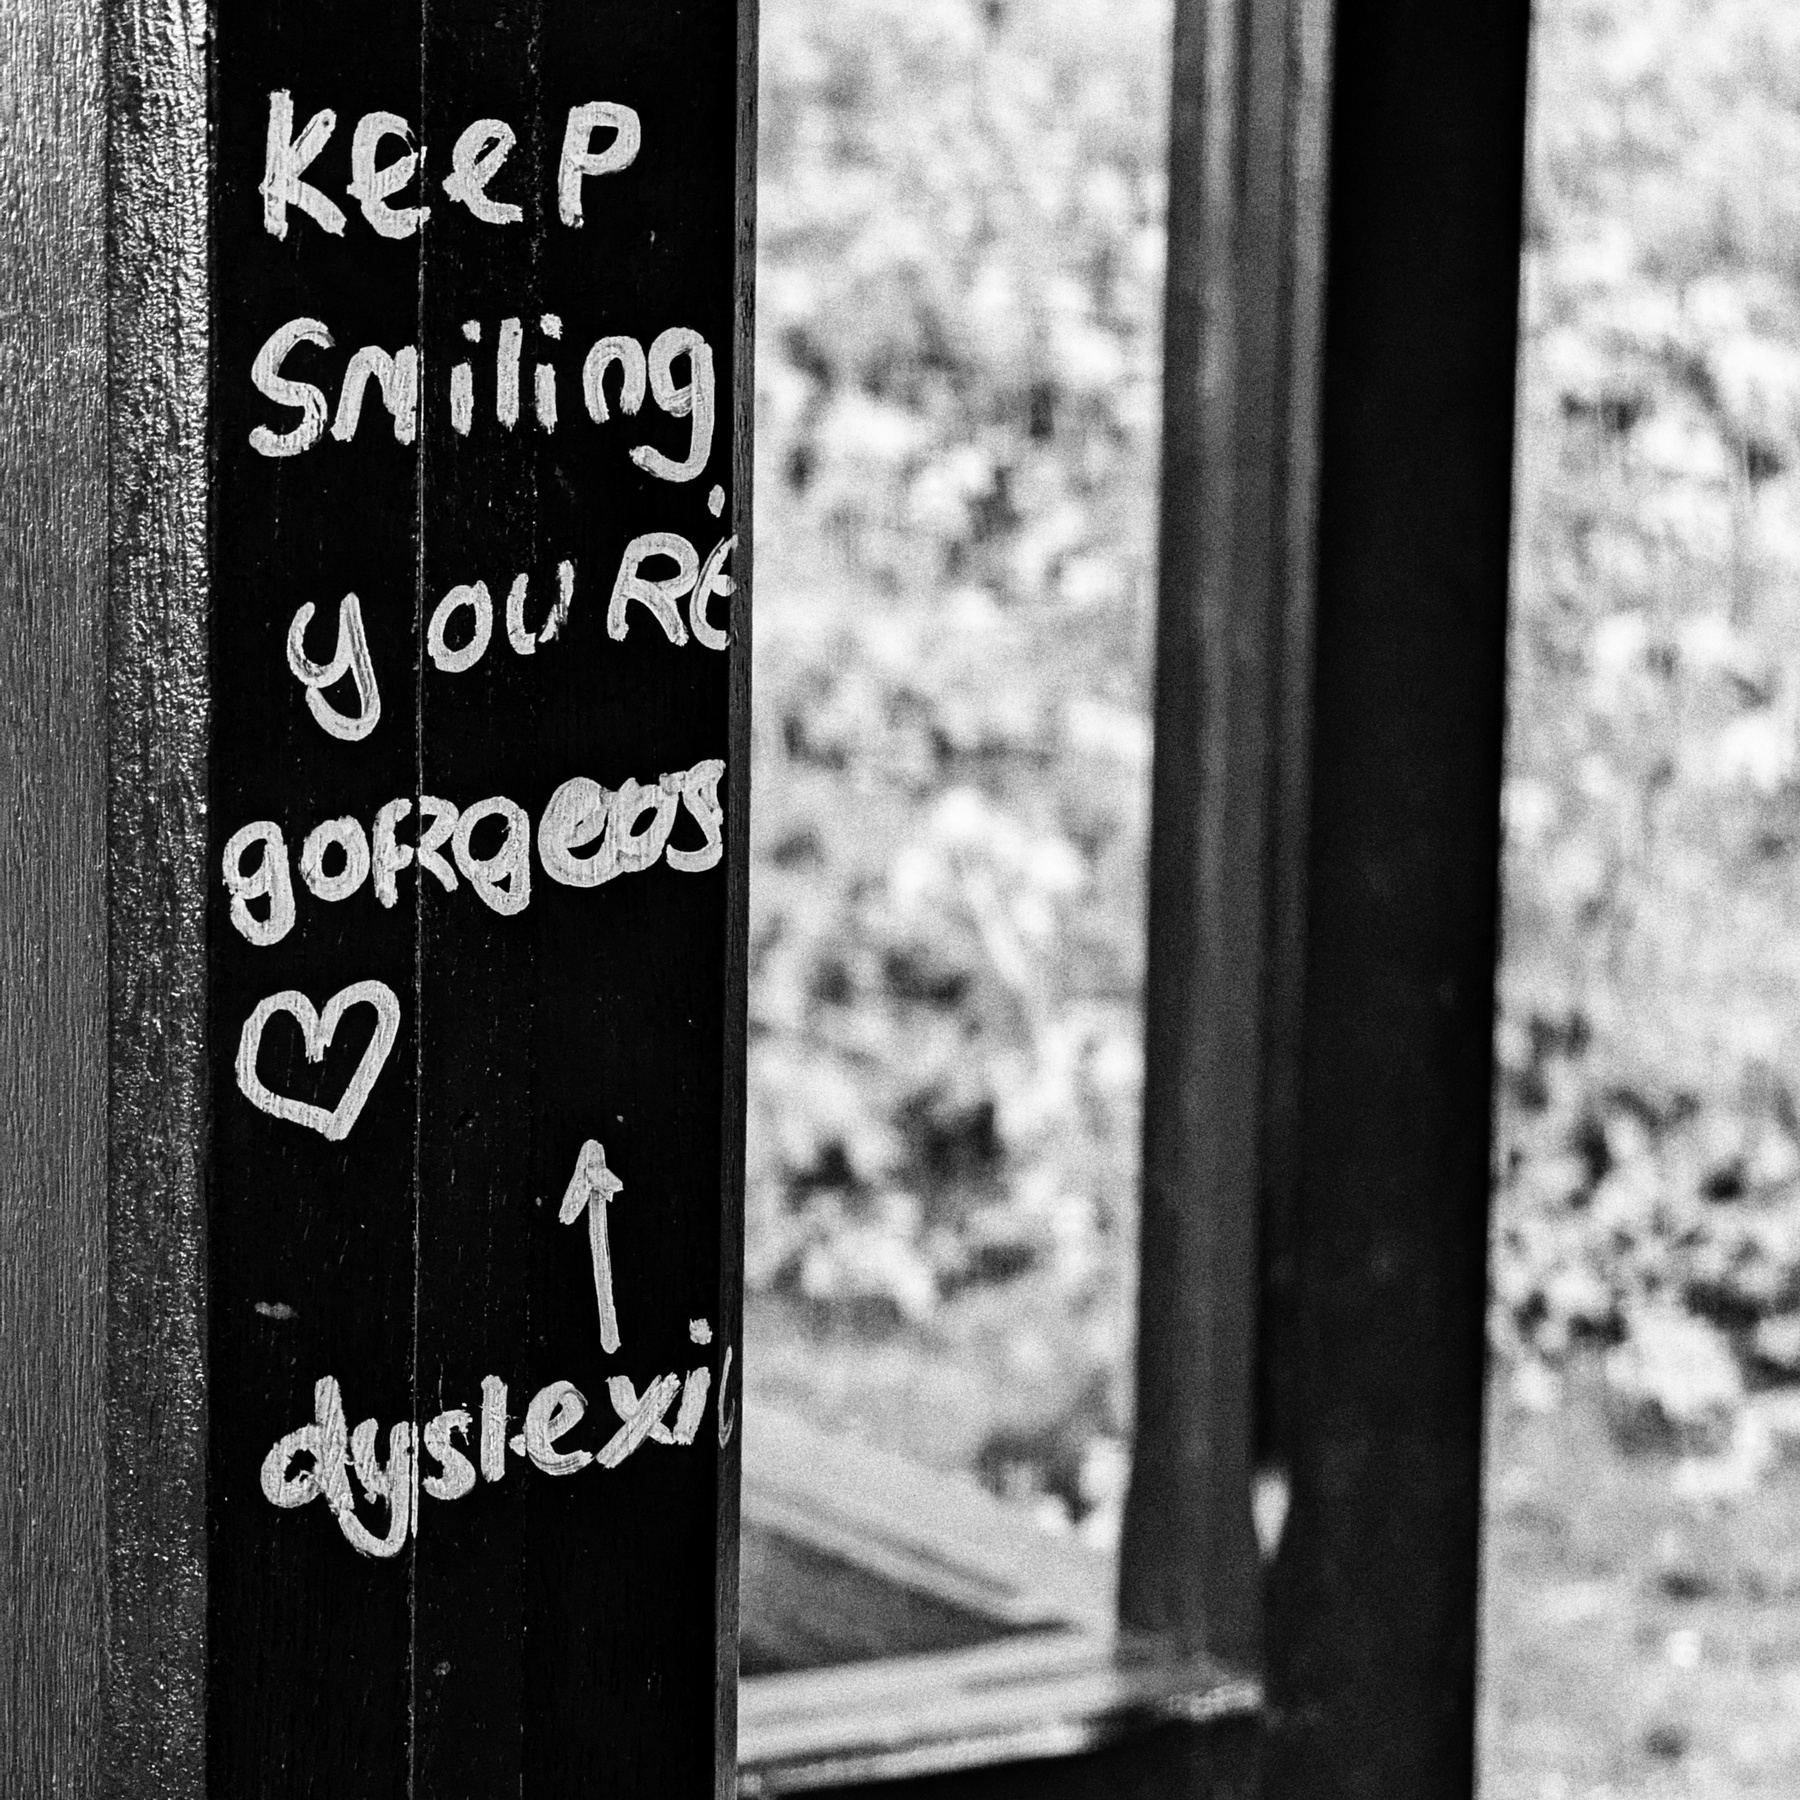 Keep
Smiling
youRe
goRgeous
♡
↑
dyslexic